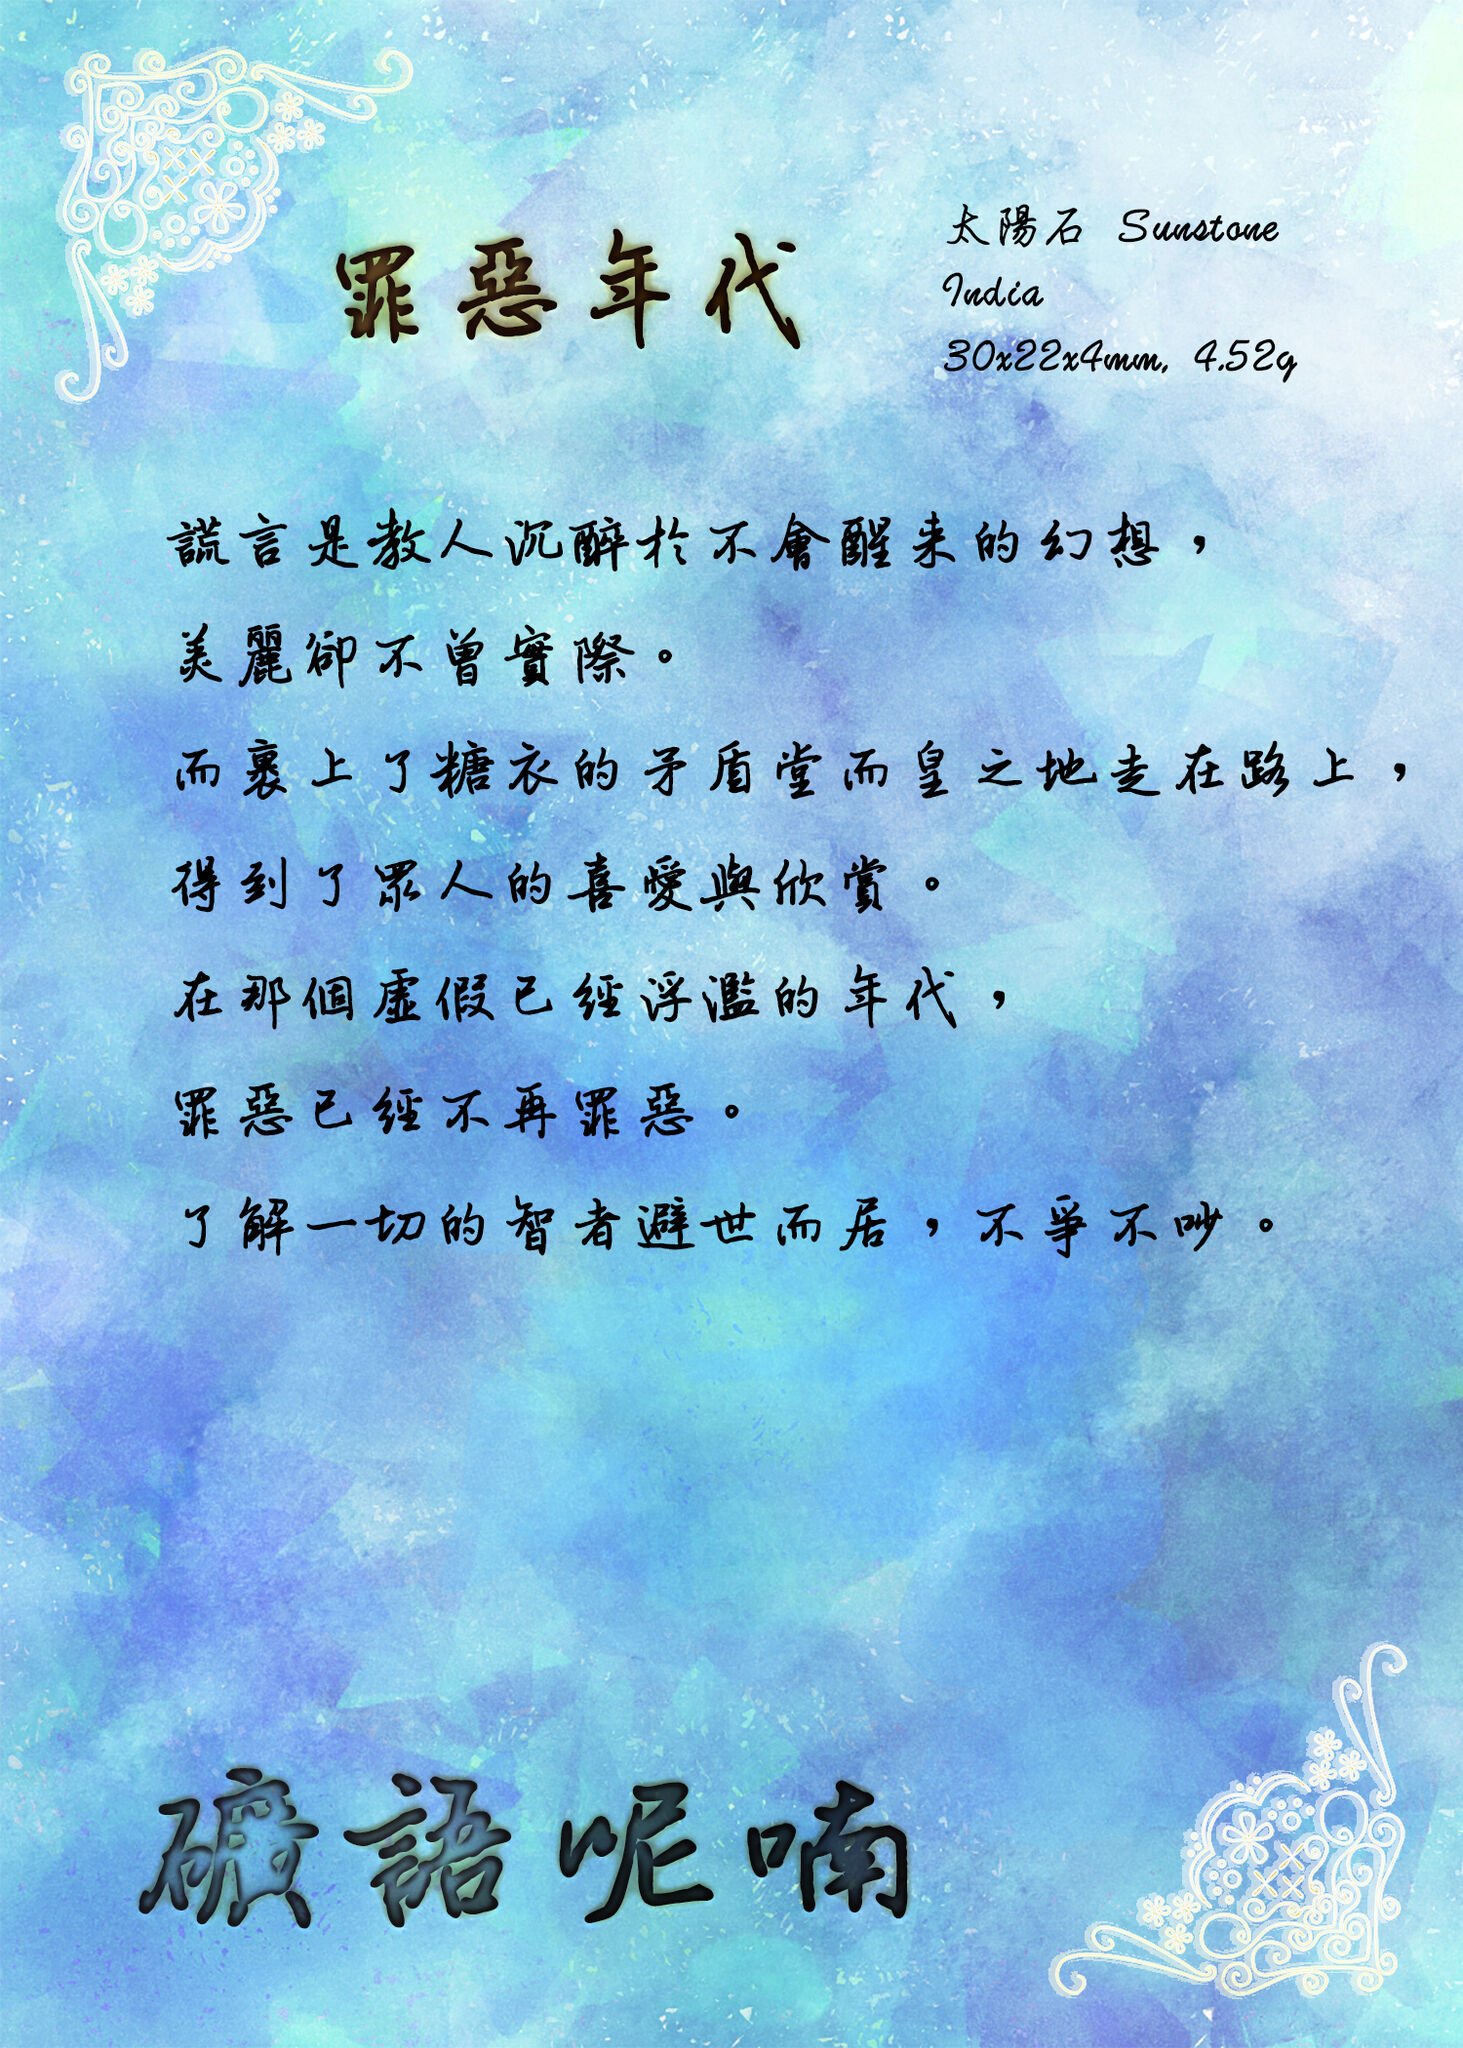 罪惡年代
太陽石 Sunstone
India
30x22x4mm, 4.52g
謊言是教人沉醉於不會醒来的幻想，
美麗卻不曾實際。
而裹上了糖衣的矛盾堂而皇之地走在路上，
得到了眾人的喜愛與欣賞。
在那個虛假已經浮濫的年代，
罪惡已經不再罪惡。
了解一切的智者避世而居，不爭不吵。
礦語呢喃